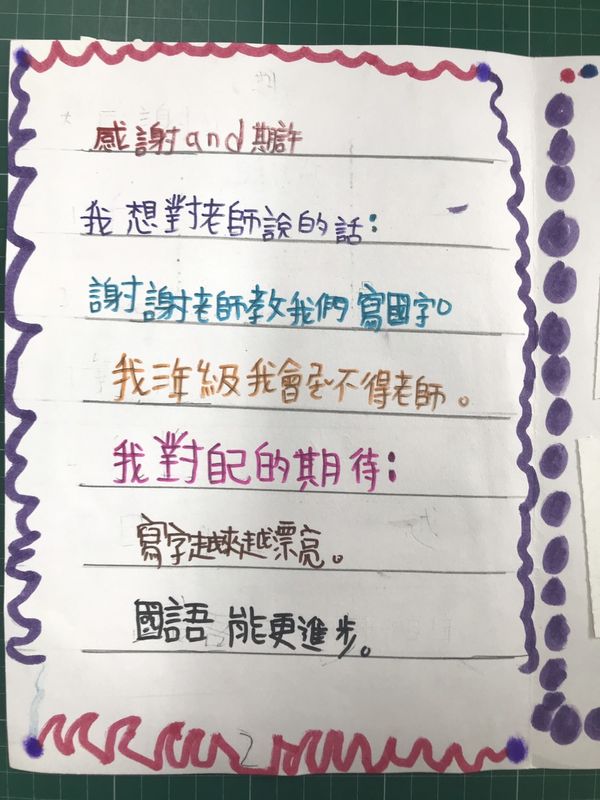 感謝and期許
我想對老師說的話:
謝謝老師教我們寫國字。
我三年級我會舍不得老師。
我對自己的期待:
寫字越來越漂亮。
國語能更進步。
2